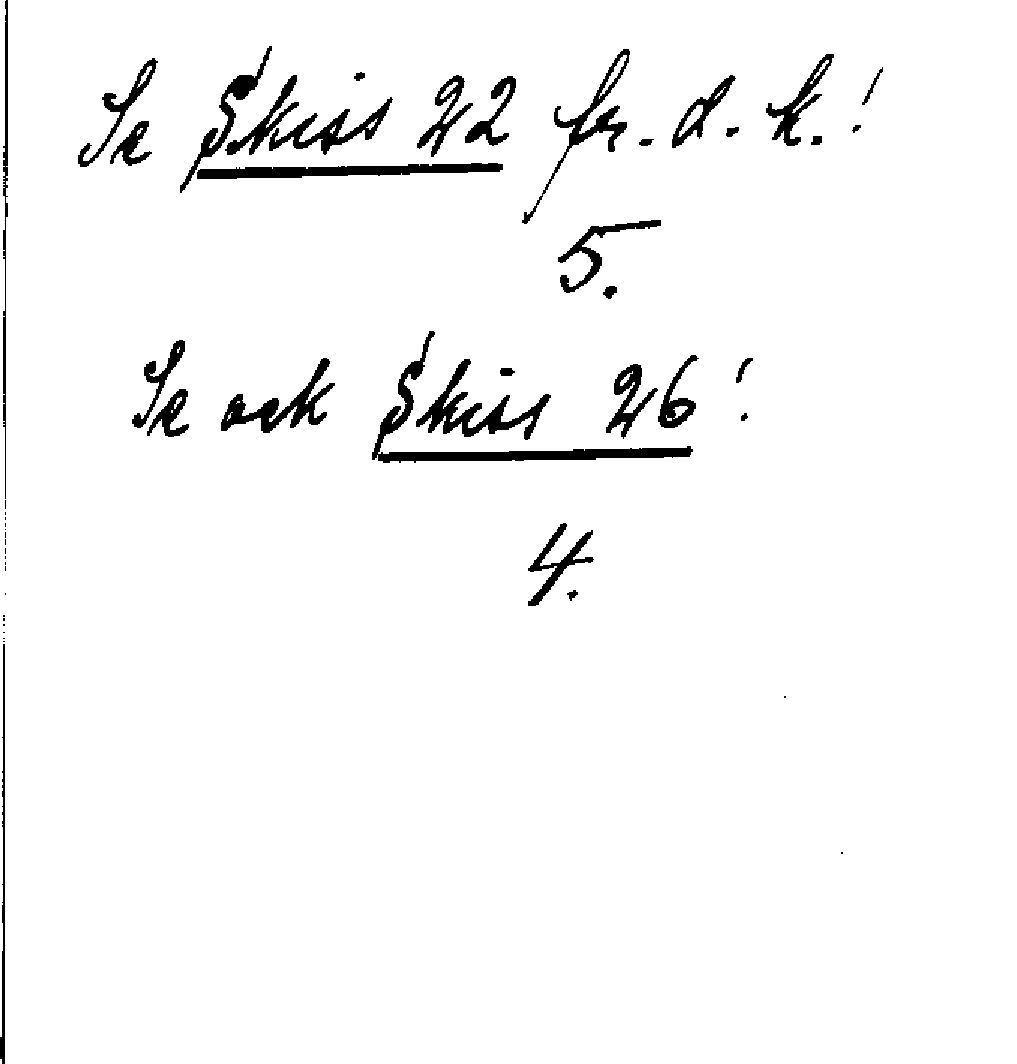 Se Skiss 22 fr. d. k.!
5.
Se ock Skiss 26!
4.